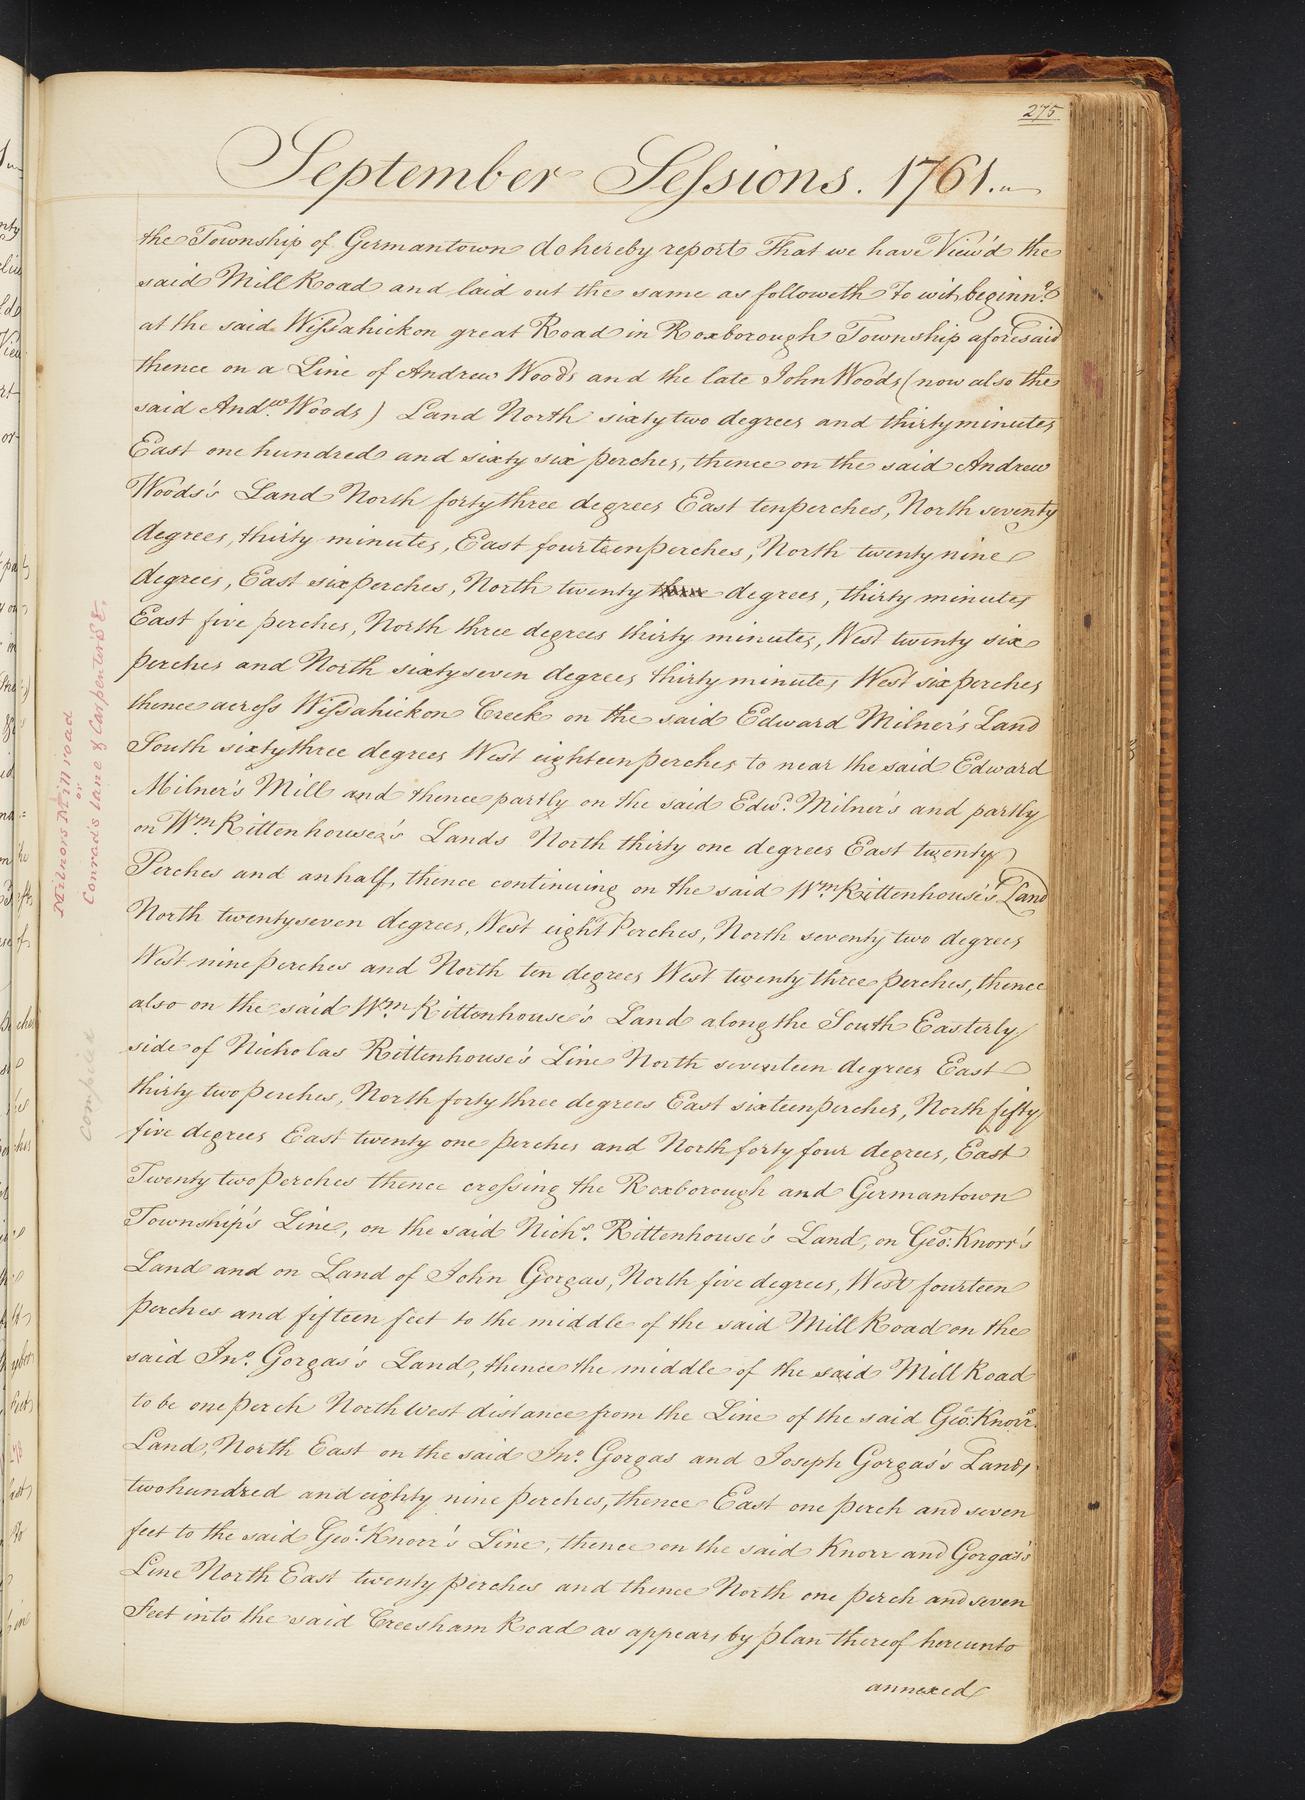 275
September Sessions. 1761.
the Township of Germantown do hereby report That we have View'd the
said Mill Road and laid out the same as followeth To wit, beginng.
at the said Wissahickon great Road in Roxborough Township aforesaid
thence on a Line of Andrew Woods and the late John Woods (now also the
said Andw. Woods) Land North sixty two degrees and thirty minutes
East one hundred and sixty six perches, thence on the said Andrew
Woods's Land North forty three degrees East ten perches, North seventy
degrees, thirty minutes, East fourteen perches, North twenty nine
degrees, East six perches, North twenty degrees, thirty minutes
East five perches, North three degrees thirty minutes, West twenty six
perches and North sixty seven degrees thirty minutes West six perches
thence across Wissahickon Creek on the said Edward Milner's Land
South sixty three degrees West eighteen perches to near the said Edward
Milner's Mill and thence partly on the said Edwd. Milner's and partly
on Wm. Rittenhouse's Lands North thirty one degrees East twenty
Perches and an half, thence continuing on the said Wm. Rittenhouse's Land
North twenty seven degrees, West eight Perches, North seventy two degrees
West nine perches and North ten degrees West twenty three perches, thence
also on the said Wm. Rittenhouse's Land along the South Easterly
side of Nicholas Rittenhouse's Line North seventeen degrees East
thirty two perches, North forty three degrees East sixteen perches, North fifty
five degrees East twenty one perches and North forty four degrees, East
Twenty two perches thence crossing the Roxborough and Germantown
Township's Line, on the said Nichs. Rittenhouse's Land, on Geo: Knorr's
Land and on Land of John Gorgas, North five degrees, West fourteen
perches and fifteen feet to the middle of the said Mill Road on the
said Jno. Gorgas's Land, thence the middle of the said Mill Road
to be one perch North West distance from the Line of the said Geo: Knorr's
Land, North East on the said Jno. Gorgas and Joseph Gorgas's Lands
two hundred and eighty nine perches, thence East one perch and seven
feet to the said Geo: Knorr's Line, thence on the said Knorr and Gorgas's
Line North East twenty perches and thence North one perch and seven
Feet into the said Creesham Road as appears by plan thereof hereunto
annexed
Milnors Mill road
or
Conrad's lane & Carpenter's St.
Compiled